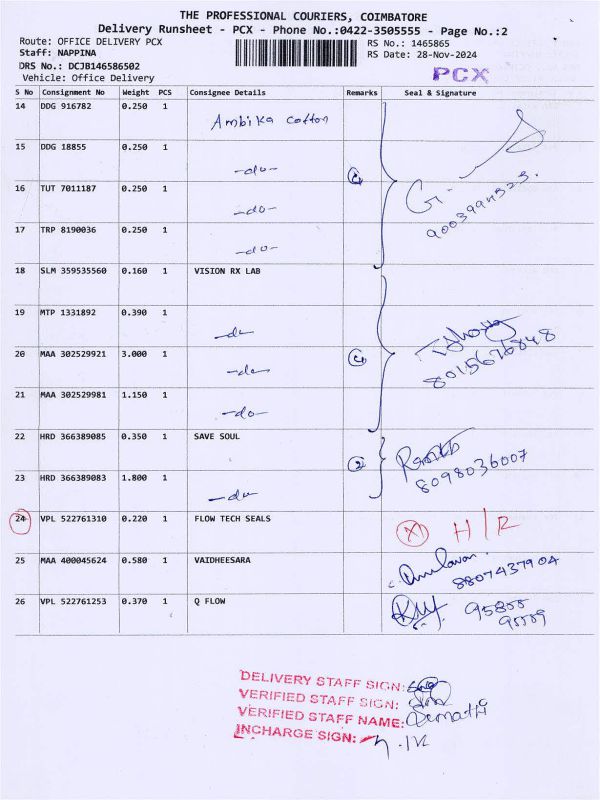 THE PROFESSIONAL COURIERS, COIMBATORE
Delivery Runsheet - PCX - Phone No.:0422-3505555 - Page No.:2
Route: OFFICE DELIVERY PCX
RS No.: 1465865
Staff: NAPPINA
RS Date: 28-Nov-2024
DRS No.: DCJB146586502
Vehicle: Office Delivery
PCX
S No Consignment No Weight PCS Consignee Details Remarks Seal & Signature
14 DDG 916782 0.250 1 Ambika cotton
15 DDG 18855 0.250 1 -do-
16 TUT 7011187 0.250 1 -do-
17 TRP 8190036 0.250 1 -do-
18 SLM 359535560 0.160 1 VISION RX LAB
19 MTP 1331892 0.390 1 -do-
20 MAA 302529921 3.000 1 -do-
8015676848
21 MAA 302529981 1.150 1 -do-
22 HRD 366389085 0.350 1 SAVE SOUL
2
8098036007
23 HRD 366389083 1.800 1 -do-
24 VPL 522761310 0.220 1 FLOW TECH SEALS H/R
25 MAA 400045624 0.580 1 VAIDHEESARA
8807437904
26 VPL 522761253 0.370 1 Q FLOW
DELIVERY STAFF SIGN:
VERIFIED STAFF SIGN:
VERIFIED STAFF NAME:
INCHARGE SIGN: